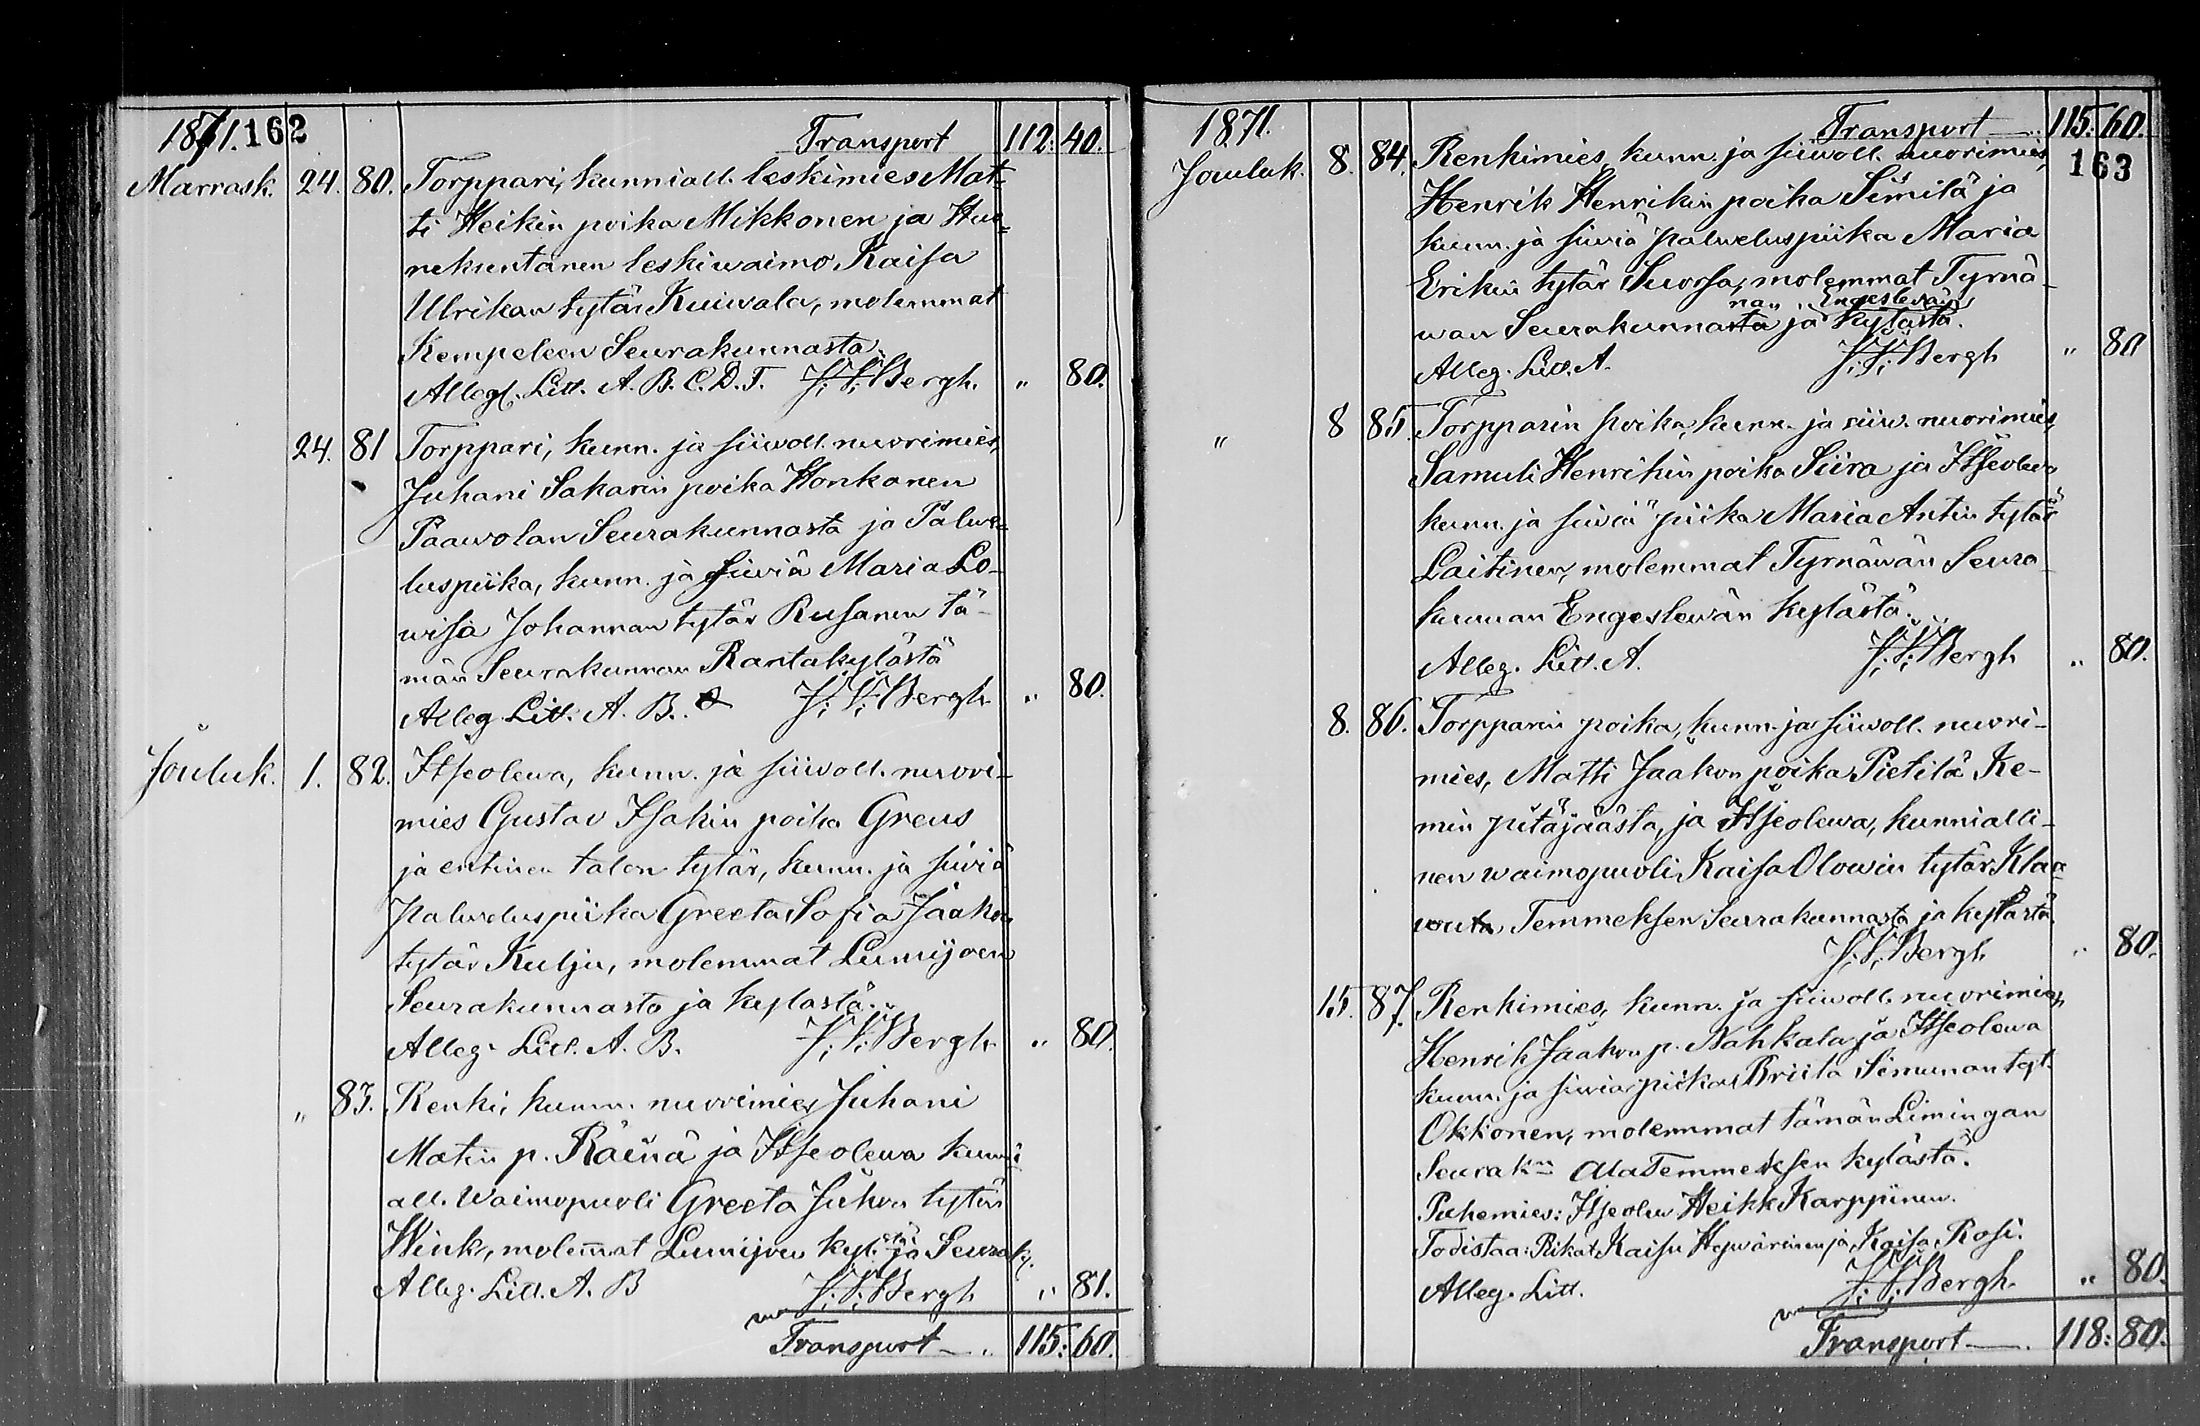 1871. 162 Transport 112: 40.
Marrask. 24. 80. Torppari, kunniall. leskimies Mat-
ti Heikin poika Mikkonen ja Huo-
nekuntanen leskiwaimo Kaisa
Ulrikan tytär Kuiwala, molemmat
Kempeleen Seurakunnasta.
Alleg. Litt. A. B. C. D. F. J. V. Bergh. " 80.
24. 81 Torppari, kunn. ja siiwoll. nuorimies,
Juhani Sakarin poika Honkanen
Paawolan Seurakunnasta ja Palwe-
luspiika, kunn. ja siiwiä Maria Lo-
wisa Johannan tytär Rusanen tä-
män Seurakunnan Rantakylästä
Alleg. Litt. A. B. J. V. Bergh " 80.
Jouluk. 1. 82. Itseolewa, kunn. ja siiwoll. nuori-
mies Gustav Isakin poika Greus
ja entinen talon tytär, kunn. ja siiwiä
Palweluspiika Greeta Sofia Jaakon
tytär Kulju, molemmat Lumijoen
Seurakunnasta ja kylästä.
Alleg. Litt. A. B. J. V. Bergh " 80.
" 83. Renki, kunn. nuorimies Juhani
Matin p. Räinä ja Itseolewa kunni
all. Waimopuoli Greeta Juhon tytär
Wink, molemmat Lumijoen kyl. stä ja Seurak.
Alleg. Litt. A. B J. V. Bergh " 81.
Transport 115: 60.
1871. Transport 115: 60.
163
Jouluk. 8. 84. Renkimies, kunn. ja siiwoll. nuorimies,
Henrik Henrikin poika Similä ja
kunn. ja siiwiä palweluspiika Maria
Erikin tytär Suorsa, molemmat Tyrnä-
nan Engeslewän
wan Seurakunnasta ja kylästä.
Alleg. Litt. A. J. V. Bergh " 80
" 8 85. Torpparin poika, kunn. ja siiw. nuorimies,
Samuli Henrikin poika Siira ja Itseolewa
kunn. ja siiwiä piika Maria Antin tytär
Laitinen, molemmat Tyrnäwän Seura-
kunnan Engeslewän kylästä.
Alleg. Litt. A. J. V. Bergh " 80.
8. 86. Torpparin poika, kunn. ja siiwoll. nuori-
mies, Matti Jaakon poika Pietilä Ke-
min pitäjäästä, ja Itseolewa, kunnialli-
nen waimopuoli Kaisa Olowin tytär Klaa
Temmeksen Seurakunnasta ja kylästä.
J. V. Bergh " 80.
15. 87. Renkimies, kunn. ja siiwoll. nuorimies,
Henrik Jaakon p. Nahkala ja Itseolewa
kunn. ja siiwiä piika Briita Simunan tyt.
Okkonen, molemmat tämän Limingan
Seurak:nn AlaTemmeksen kylästä.
Puhemies: Itseolew Heikk Karppinen.
Todistaa: Piikat Kaisu Hepwärinen ja Kaisa Rosi.
Alleg. Litt. J. V. Bergh. " 80.
Transport 118: 80.